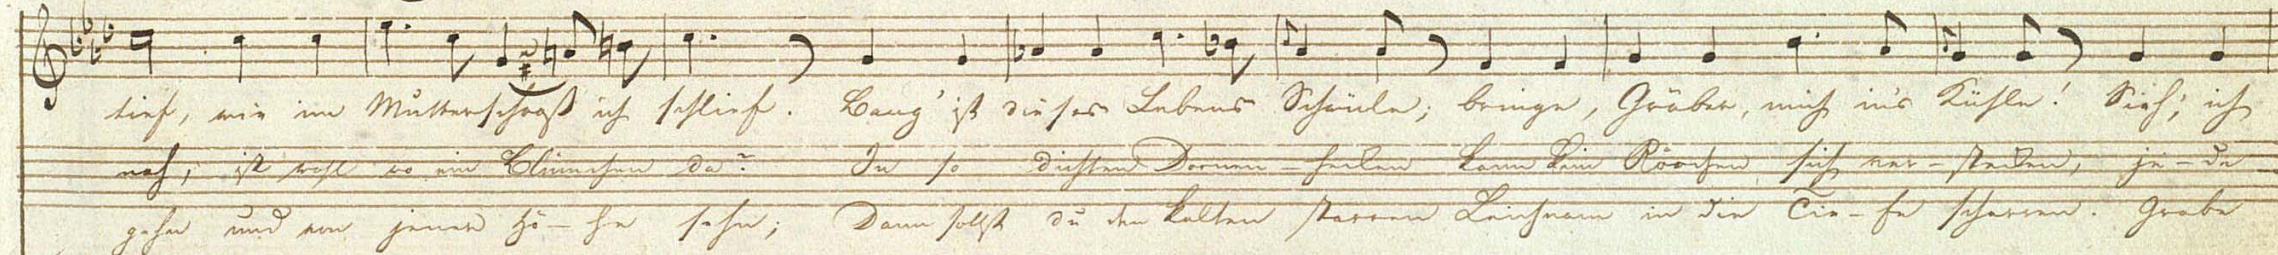 tief, wie im Mutterschooß ich schlief. Lang' ist dieses Lebens Schwüle; bringe, Gräber, mich in's Kühle! Sieh; ich
nah; ist wohl wo ein Blümchen da? In so dichten Dornen-hecken kann kein Röschen sich ver-stecken, je-de
gehn und von jener Hö-he sehn; Dann sollst du den kalten starren Leichnam in die Tie-fe scharren. Grabe